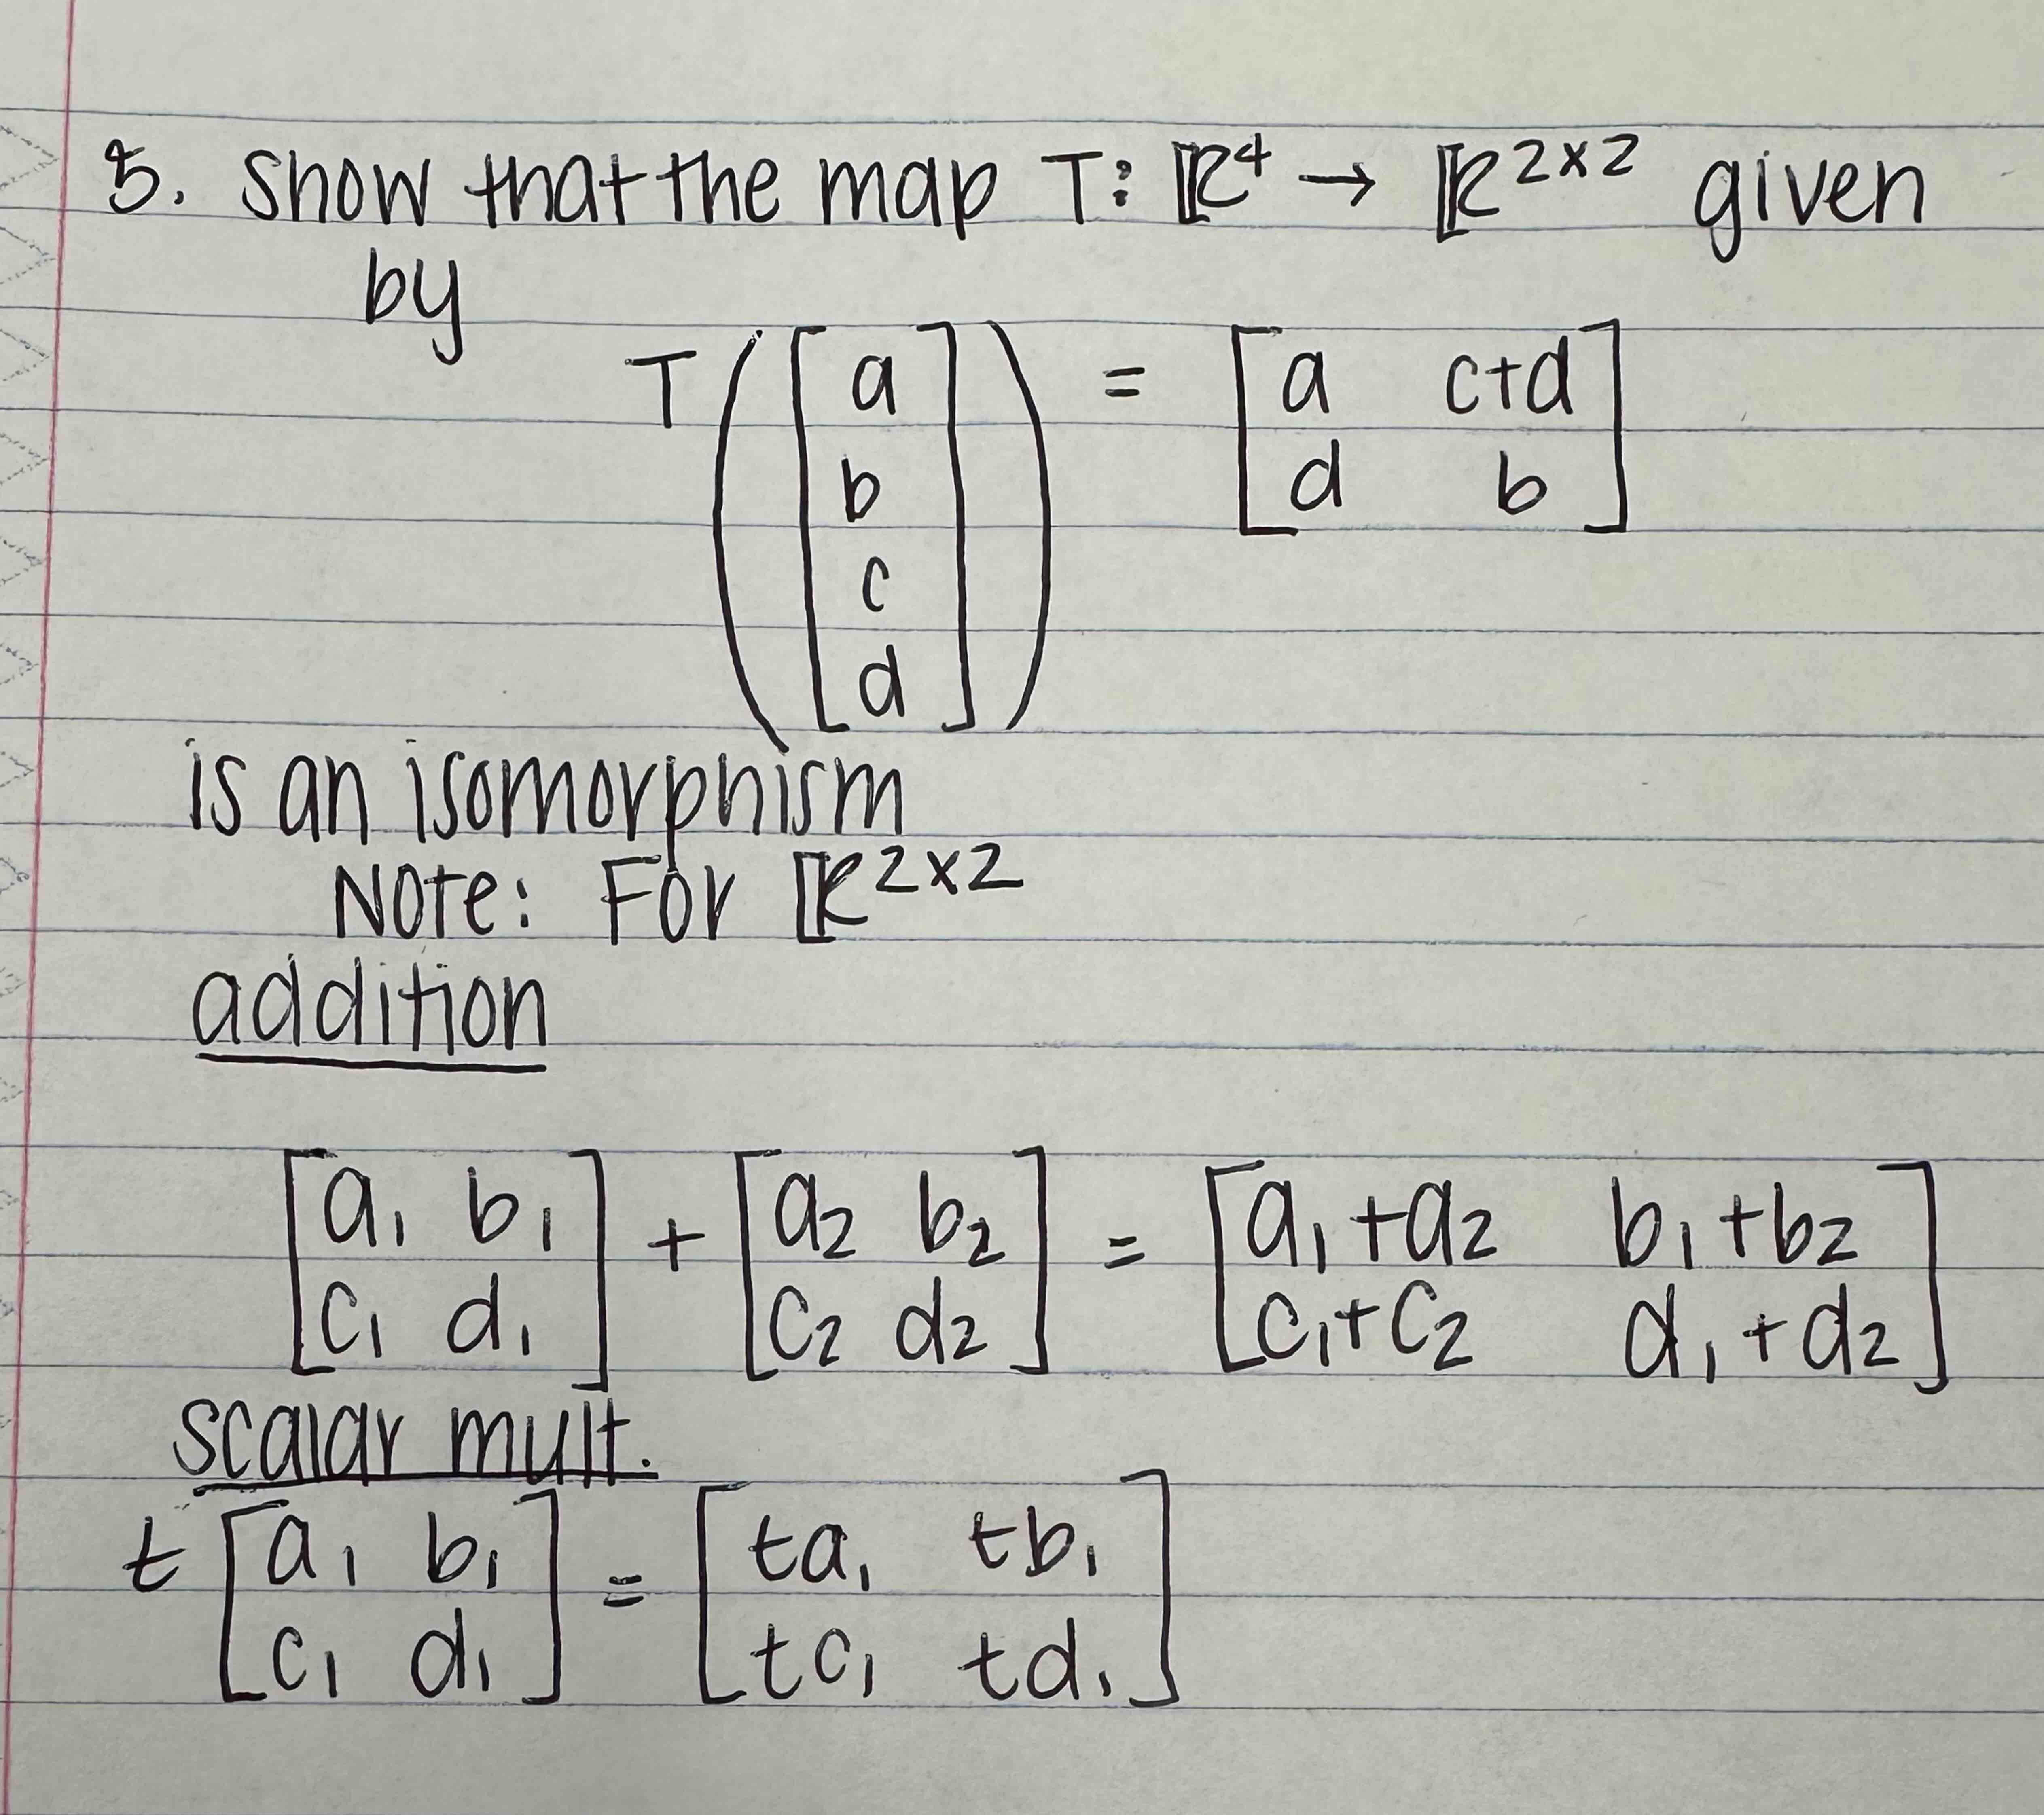 5. Show that the map T: ℝ⁴ → ℝ²ˣ² given
by
T([a b c d]) = [a c+d
d b]
is an isomorphism
Note: For ℝ²ˣ²
addition
[a₁ b₁ + [a₂ b₂ = [a₁+a₂ b₁+b₂
c₁ d₁] c₂ d₂] c₁+c₂ d₁+d₂]
scalar mult.
t [a₁ b₁ = [ta₁ tb₁
c₁ d₁] tc₁ td₁]